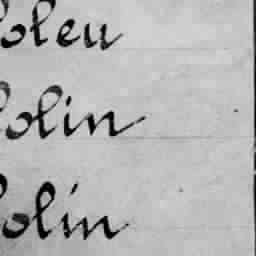 oleu
olin
olin